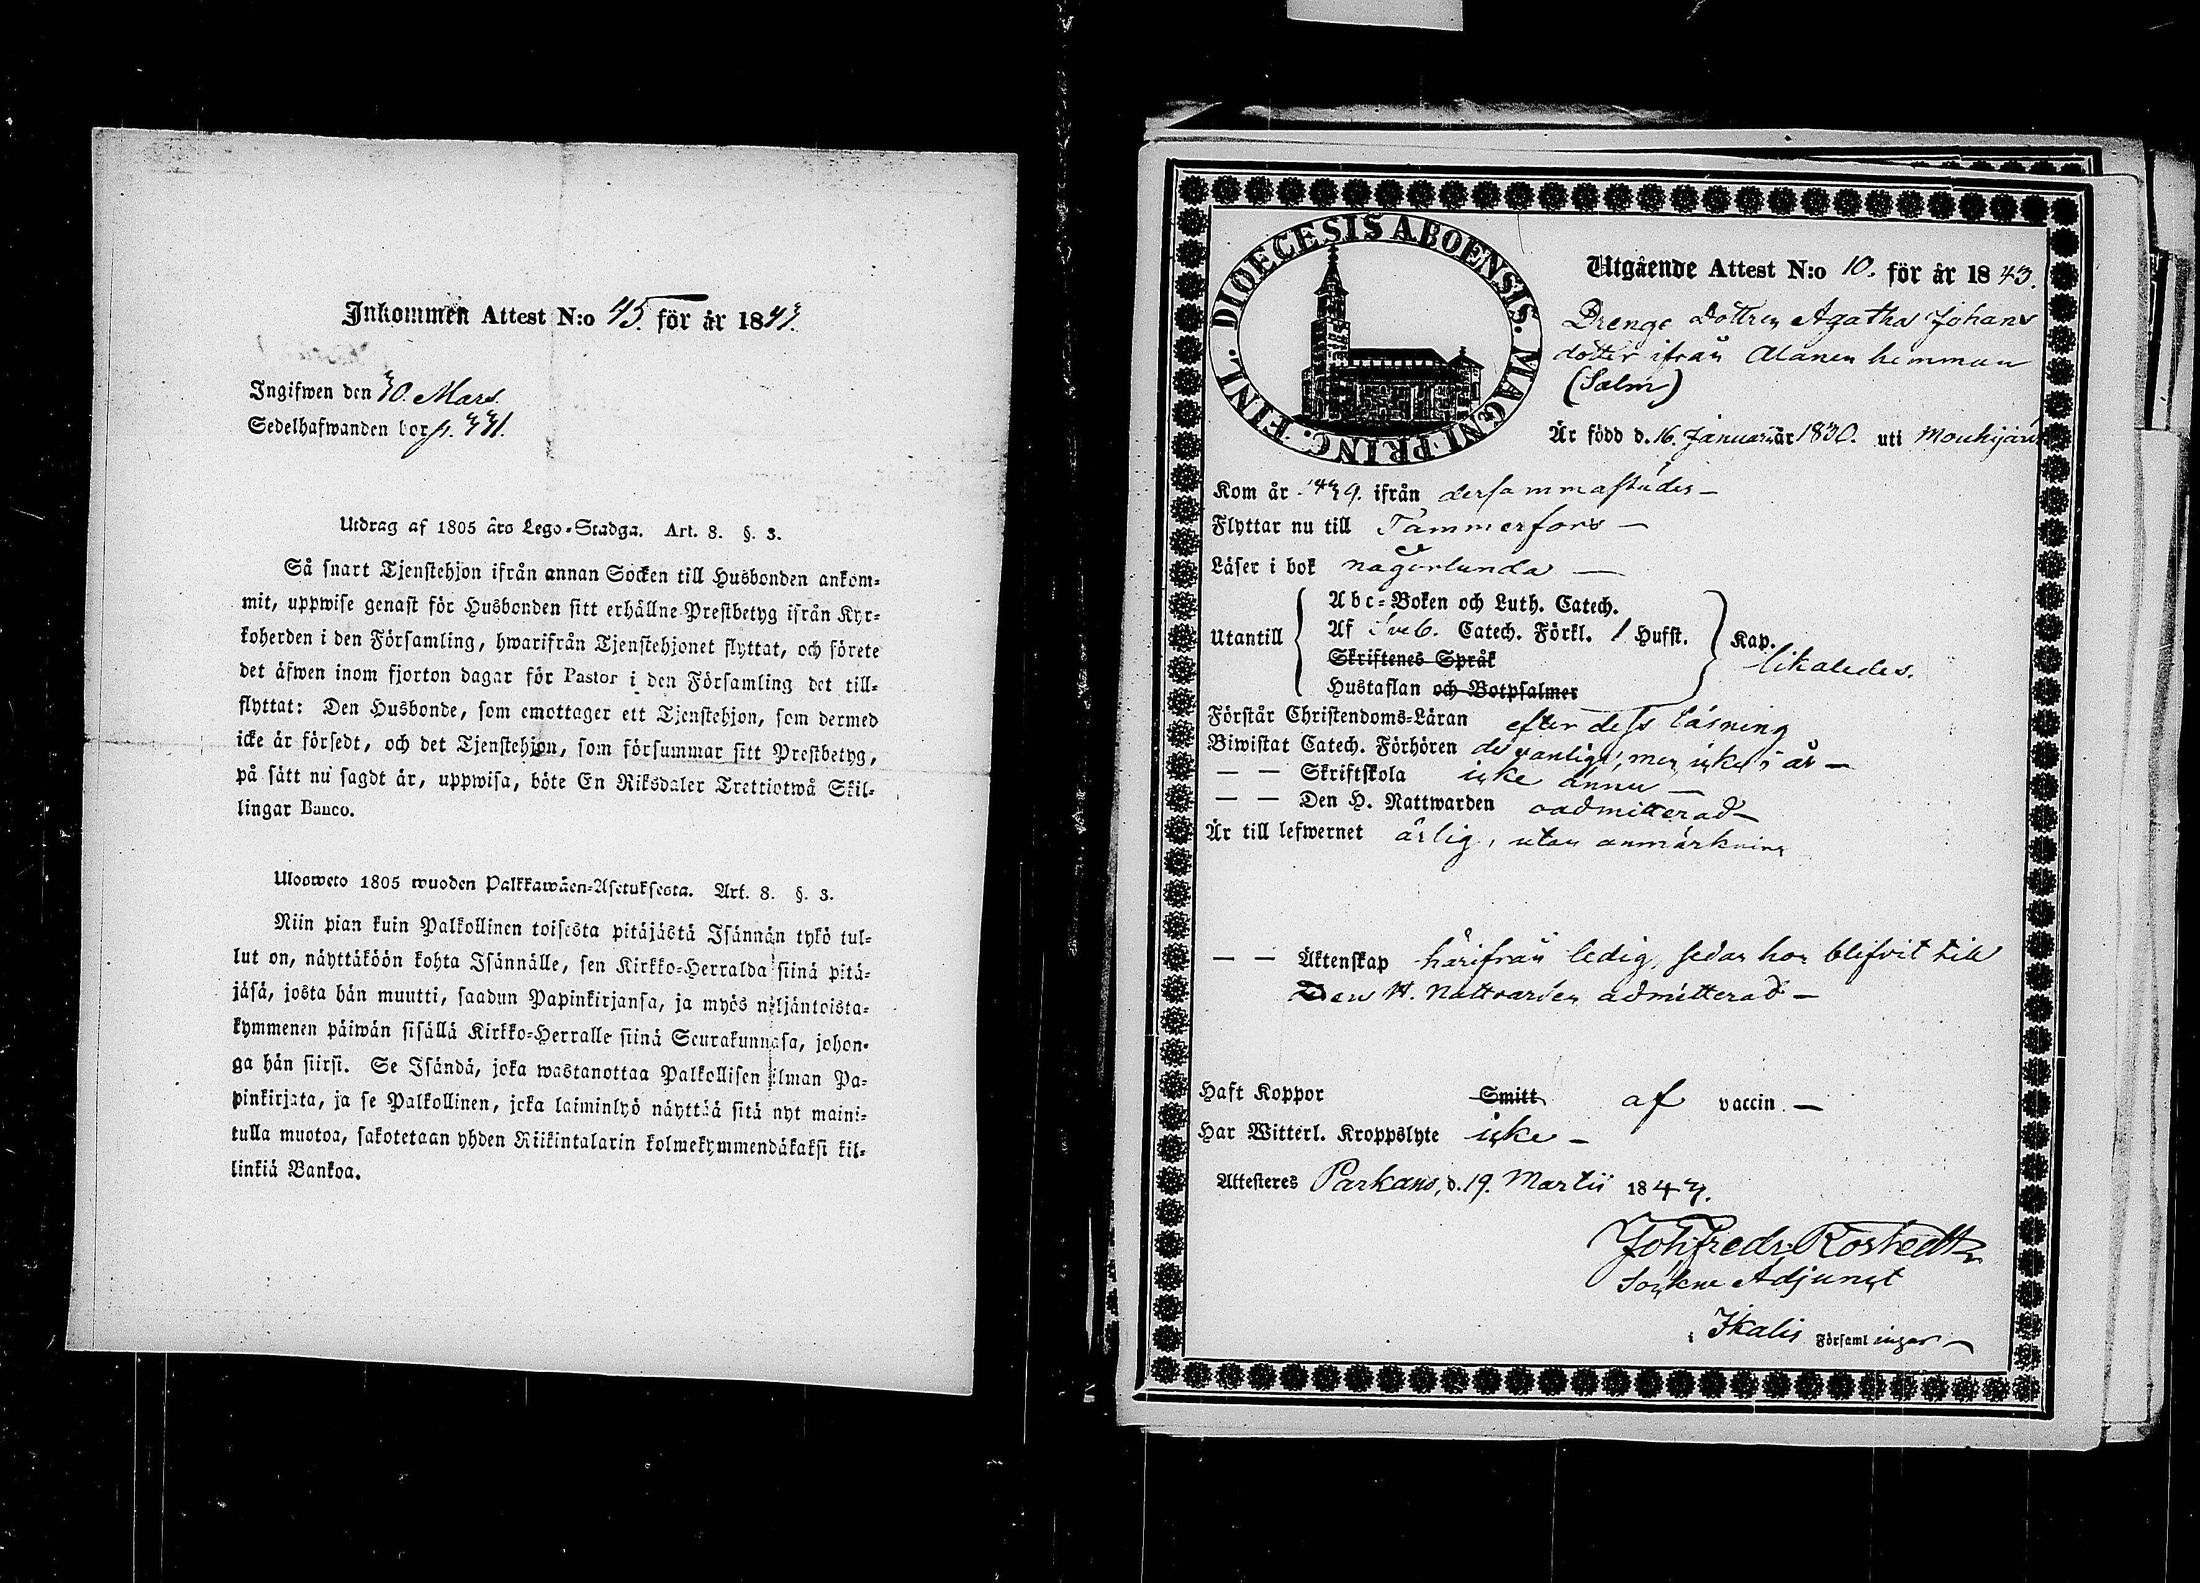 Inkommen Attest N:o 45. för år 1843.
Ingifwen den 30. Mars.
Sedelhafwanden bor p. 331.
Utdrag af 1805 års Lego-Stadga. Art. 8. §. 3.
Så snart Tjenstehjon ifrån annan Socken till Husbonden ankom-
mit, uppwise genast för Husbonden sitt erhållne Prestbetyg ifrån Kyr-
koherden i den Församling, hwarifrån Tjenstehjonet flyttat, och förete
det äfwen inom fjorton dagar för Pastor i den Församling det till-
flyttat: Den Husbonde, som emottager ett Tjenstehjon, som dermed
icke är försedt, och det Tjenstehjon, som försummar sitt Prestbetyg,
på sätt nu sagdt är, uppwisa, böte En Riksdaler Trettiotwå Skil-
lingar Banco.
Ulosweto 1805 wuoden Palkkawäen-Asetuksesta. Art. 8. §. 3.
Niin pian kuin Palkollinen toisesta pitäjästä Isännän tykö tul-
lut on, näyttäköön kohta Isännälle, sen Kirkko-Herralda siinä pitä-
jäsä, josta hän muutti, saadun Papinkirjansa, ja myös neljäntoista-
kymmenen päiwän sisällä Kirkko-Herralle siinä Seurakunnasa, johon-
ga hän siirsi. Se Isändä, joka wastanottaa Palkollisen ilman Pa-
pinkirjata, ja se Palkollinen, joka laiminlyö näyttää sitä nyt maini-
tulla muotoa, sakotetaan yhden Riikintalarin kolmekymmendäkaksi kil-
linkiä Bankoa.
DIOECESIS ABOENSIS. MAGNI PRINC. FINL.
Utgående Attest N:o 10. för år 1843.
Drenge Dottren Agatha Johans
dotter ifrån Alanen hemman
(Salm)
Är född d. 16. Januari år 1830. uti Mouhijärvi
Kom år 1839. ifrån dersammastädes –
Flyttar nu till Tammerfors –
Läser i bok någorlunda –
Utantill
Abc-Boken och Luth. Catech.
Af Sveb. Catech. Förkl. 1 Hufst.
Skriftenes Språk
Hustaflan och Botpsalmer
Kap. likaledes.
Förstår Christendoms-Läran efter dess läsning
Biwistat Catech. Förhören de vanliga, men icke i år –
– – Skriftskola icke ännu –
– – Den H. Nattwarden oadmitterad –
Är till lefwernet ärlig, utan anmärkning
– – Äktenskap härifrån ledig, sedan hon blifvit till
Den H. Nattvarden admitterad –
Haft Koppor Smitt. af vaccin. –
Har Witterl. Kroppslyte icke –
Attesteres Parkano, d. 19. Martii 1843.
Joh. Fredr. Rostedt
Sockne Adjunct
i Ikalis Församlingar –